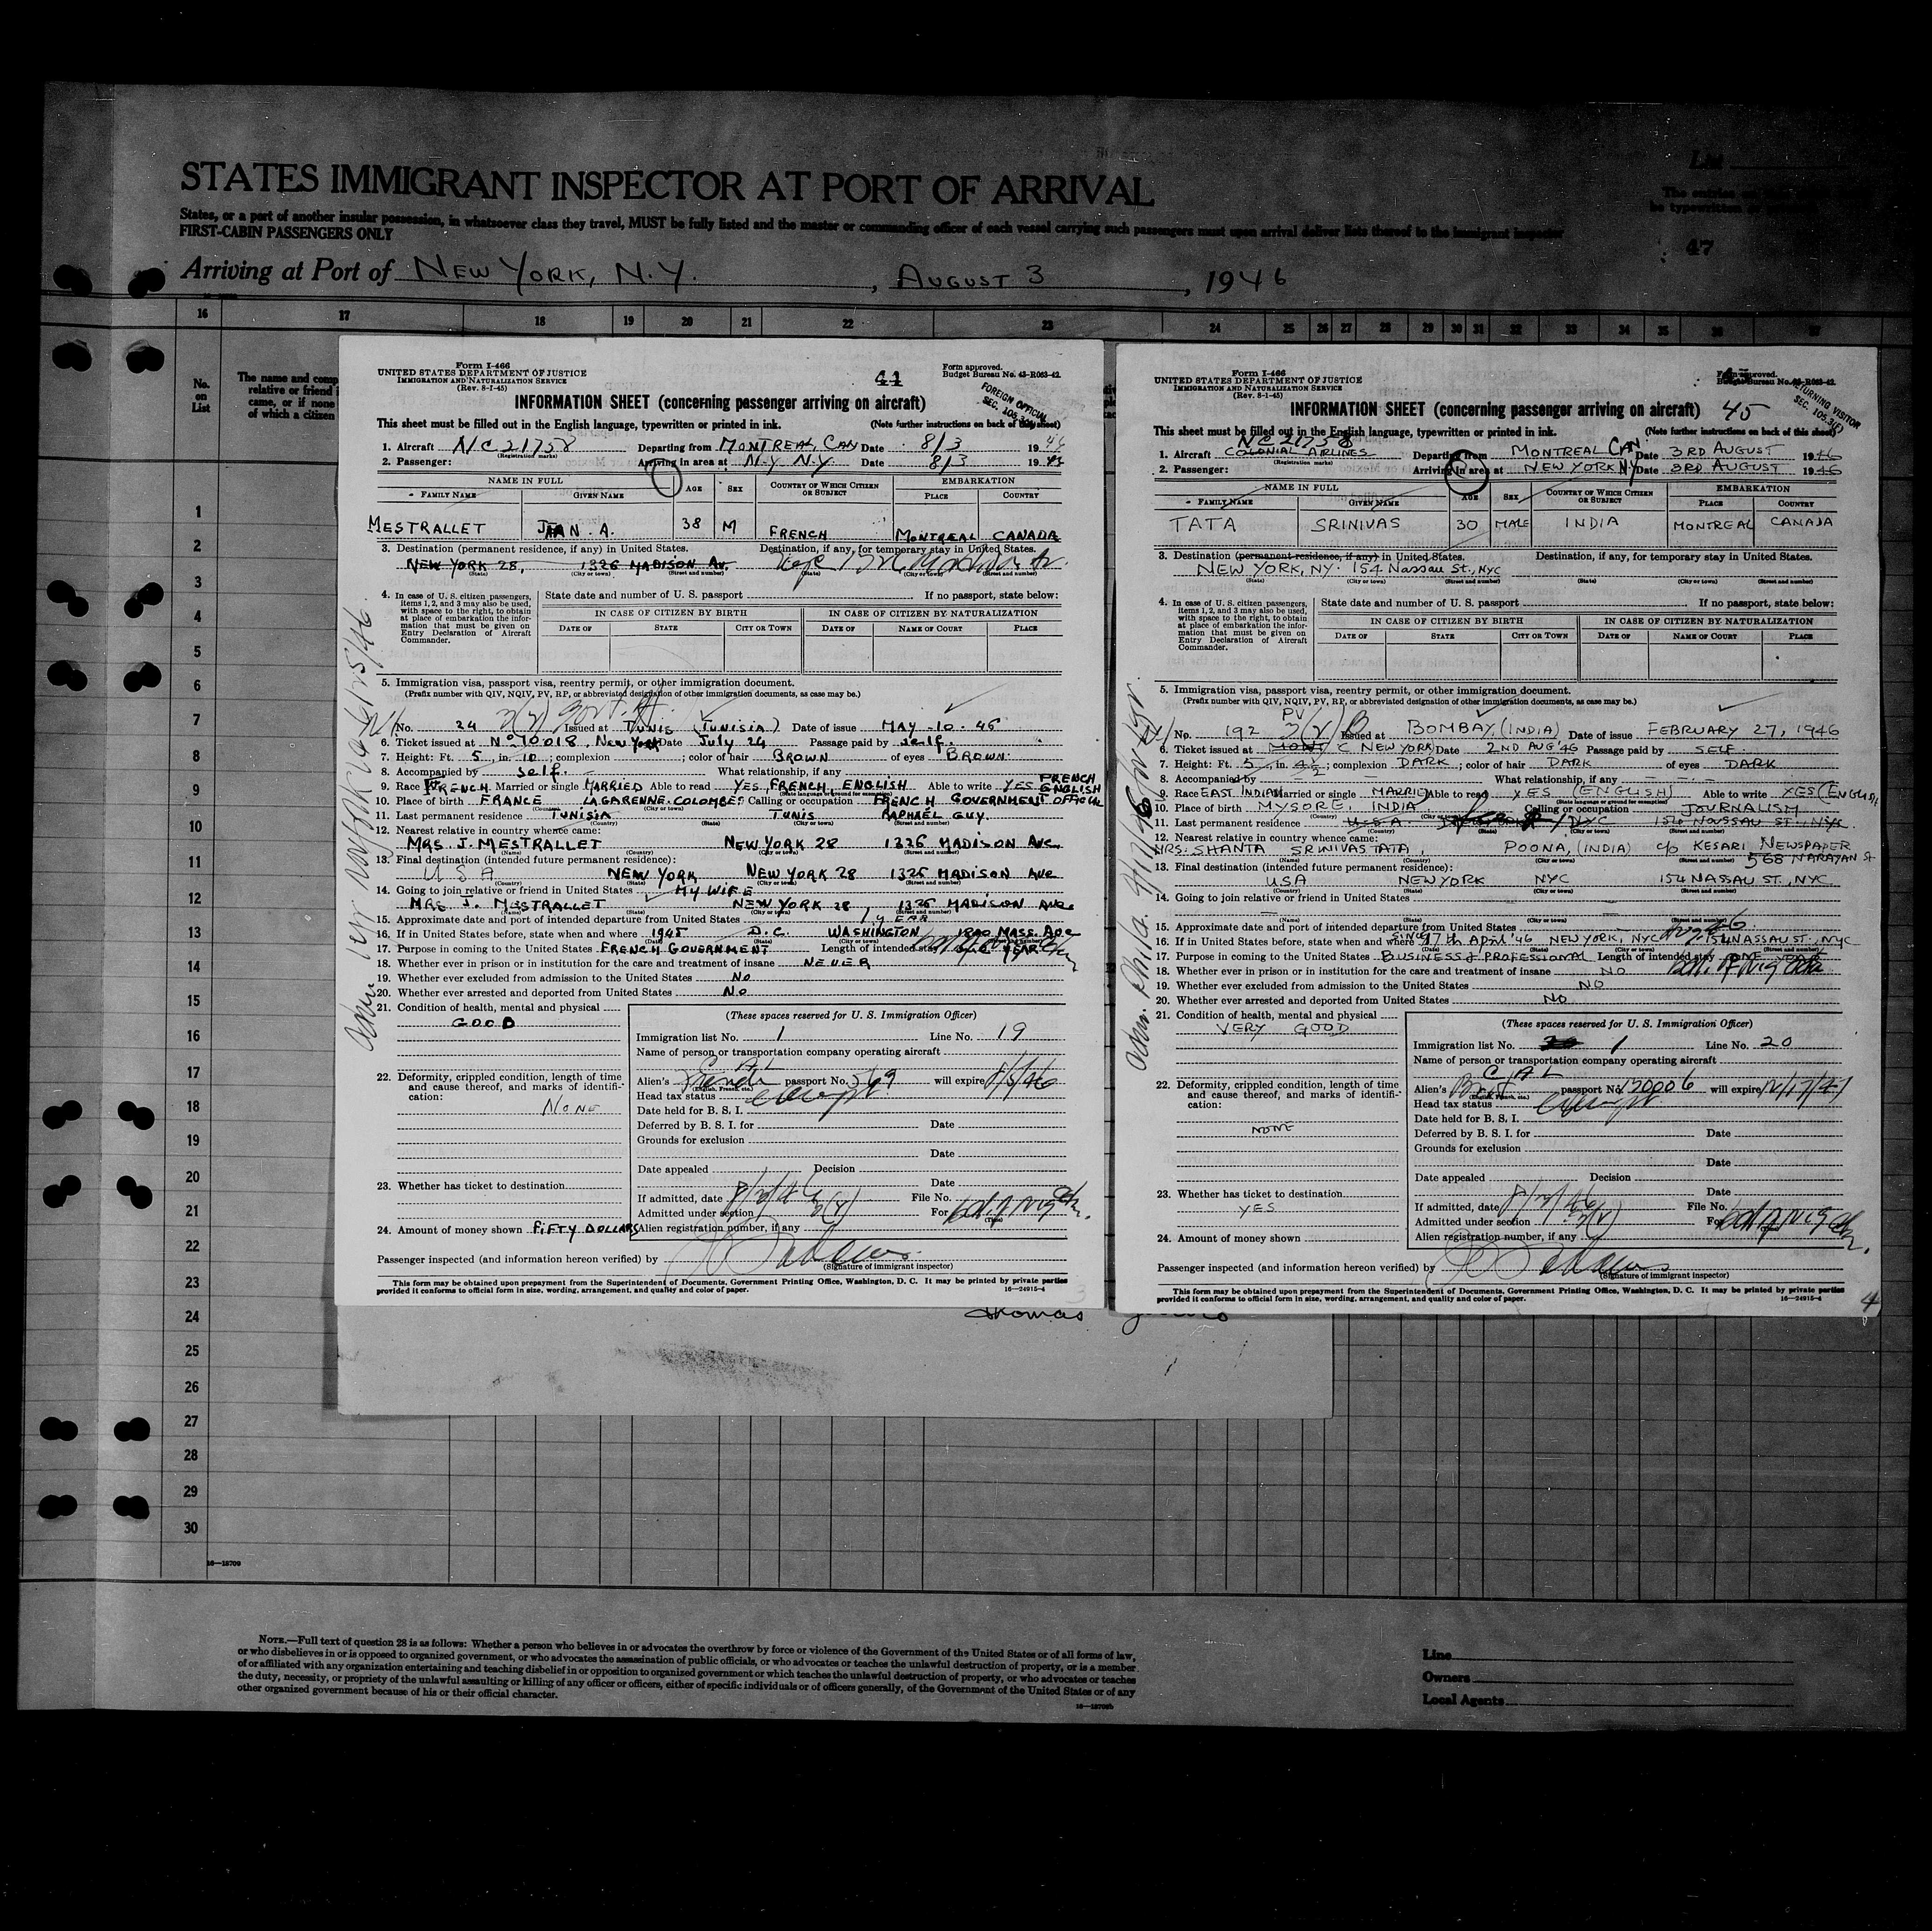 STATES IMMIGRANT INSPECTOR AT PORT OF ARRIVAL
States, or a port of another insular possession, in whatsoever class they travel, MUST be fully listed and the master or commanding officer of each vessel carrying such passengers must upon arrival deliver lists thereof to the immigrant inspector
FIRST-CABIN PASSENGERS ONLY
List
The entries on
be typewritten or
47
Arriving at Port of NEW YORK, N.Y., AUGUST 3, 1946
16 17 18 19 20 21 22 23 24 25 26 27 28 29 30 31 32 33 34 35 36 37
No. on List
The name and comp
relative or friend i
came, or if none
of which a citizen
1
2
3
4
5
6
7
8
9
10
11
12
13
14
15
16
17
18
19
20
21
22
23
24
25
26
27
28
29
30
16—18700
Form I-466
UNITED STATES DEPARTMENT OF JUSTICE
IMMIGRATION AND NATURALIZATION SERVICE
(Rev. 8-1-45)
44
Form approved.
Budget Bureau No. 43-R063-42.
FOREIGN OFFICIAL
SEC. 105.3
INFORMATION SHEET (concerning passenger arriving on aircraft)
This sheet must be filled out in the English language, typewritten or printed in ink. (Note further instructions on back of this sheet)
1. Aircraft NC 21758 Departing from MONTREAL, CAN Date 8/3 1946
(Registration marks)
2. Passenger: Arriving in area at N.Y. N.Y. Date 8/3 19
NAME IN FULL AGE SEX COUNTRY OF WHICH CITIZEN OR SUBJECT EMBARKATION
FAMILY NAME GIVEN NAME PLACE COUNTRY
MESTRALLET JEAN. A. 38 M FRENCH MONTREAL CANADA
3. Destination (permanent residence, if any) in United States. Destination, if any, for temporary stay in United States.
NEW YORK 28, 1326 MADISON AV. 1326 Madison Av.
(State) (City or town) (Street and number) (State) (City or town) (Street and number)
4. In case of U. S. citizen passengers, items 1, 2, and 3 may also be used, with space to the right, to obtain at place of embarkation the information that must be given on Entry Declaration of Aircraft Commander.
State date and number of U. S. passport If no passport, state below:
IN CASE OF CITIZEN BY BIRTH IN CASE OF CITIZEN BY NATURALIZATION
DATE OF STATE CITY OR TOWN DATE OF NAME OF COURT PLACE
5. Immigration visa, passport visa, reentry permit, or other immigration document.
(Prefix number with QIV, NQIV, PV, RP, or abbreviated designation of other immigration documents, as case may be.)
No. 24 Issued at TUNIS (TUNISIA) Date of issue MAY-10-46
6. Ticket issued at No 70018, New York Date July 24 Passage paid by self.
7. Height: Ft. 5, in. 10; complexion ; color of hair BROWN of eyes BROWN
8. Accompanied by self. What relationship, if any
9. Race FRENCH Married or single MARRIED Able to read YES, FRENCH, ENGLISH Able to write YES FRENCH ENGLISH
(State language or ground for exemption)
10. Place of birth FRANCE LA GARENNE. COLOMBES Calling or occupation FRENCH GOVERNMENT OFFICIAL
(Country) (City or town)
11. Last permanent residence TUNISIA TUNIS RAPHAËL GUY.
(Country) (State) (City or town) (Street and number)
12. Nearest relative in country whence came:
MRS. J. MESTRALLET NEW YORK 28 1326 MADISON AVE.
(Name) (Country) (City or town) (Street and number)
13. Final destination (intended future permanent residence):
USA NEW YORK NEW YORK 28 1326 MADISON AVE
(Country) (State) (City or town) (Street and number)
14. Going to join relative or friend in United States MY WIFE
MRS J. MESTRALLET NEW YORK 28, 1326 MADISON AVE.
(Name) (State) (City or town) (Street and number)
15. Approximate date and port of intended departure from United States 1 YEAR
16. If in United States before, state when and where 1945 D.C. WASHINGTON 1800 MASS. AVE
(Date) (State) (City or town) (Street and number)
17. Purpose in coming to the United States FRENCH GOVERNMENT Length of intended stay YEAR
18. Whether ever in prison or in institution for the care and treatment of insane NEVER
19. Whether ever excluded from admission to the United States No
20. Whether ever arrested and deported from United States No
21. Condition of health, mental and physical
GOOD
22. Deformity, crippled condition, length of time and cause thereof, and marks of identification:
NONE
23. Whether has ticket to destination
24. Amount of money shown FIFTY DOLLARS
(These spaces reserved for U. S. Immigration Officer)
Immigration list No. 1 Line No. 19
Name of person or transportation company operating aircraft
CAL
Alien's French passport No. 569 will expire 8/5/46
(English, French, etc.)
Head tax status exempt
Date held for B. S. I.
Deferred by B. S. I. for Date
Grounds for exclusion
Date
Date appealed Decision
Date
If admitted, date 8/3/46 File No.
Admitted under section 3(1) For
Alien registration number, if any
Passenger inspected (and information hereon verified) by
(Signature of immigrant inspector)
This form may be obtained upon prepayment from the Superintendent of Documents, Government Printing Office, Washington, D. C. It may be printed by private parties
provided it conforms to official form in size, wording, arrangement, and quality and color of paper. 16—24915-4
3
Thomas
Form I-466
UNITED STATES DEPARTMENT OF JUSTICE
IMMIGRATION AND NATURALIZATION SERVICE
(Rev. 8-1-45)
45
Form approved.
Budget Bureau No. 43-R063-42.
RETURNING VISITOR
SEC. 105.3(F)
INFORMATION SHEET (concerning passenger arriving on aircraft)
This sheet must be filled out in the English language, typewritten or printed in ink. (Note further instructions on back of this sheet)
NC 21758
1. Aircraft COLONIAL AIRLINES Departing from MONTREAL CAN Date 3RD AUGUST 1946
(Registration marks)
2. Passenger: Arriving in area at NEW YORK NY Date 3RD AUGUST 1946
NAME IN FULL AGE SEX COUNTRY OF WHICH CITIZEN OR SUBJECT EMBARKATION
FAMILY NAME GIVEN NAME PLACE COUNTRY
TATA SRINIVAS 30 MALE INDIA MONTREAL CANADA
3. Destination (permanent residence, if any) in United States. Destination, if any, for temporary stay in United States.
NEW YORK, NY. 154 Nassau St., NYC
(State) (City or town) (Street and number) (State) (City or town) (Street and number)
4. In case of U. S. citizen passengers, items 1, 2, and 3 may also be used, with space to the right, to obtain at place of embarkation the information that must be given on Entry Declaration of Aircraft Commander.
State date and number of U. S. passport If no passport, state below:
IN CASE OF CITIZEN BY BIRTH IN CASE OF CITIZEN BY NATURALIZATION
DATE OF STATE CITY OR TOWN DATE OF NAME OF COURT PLACE
5. Immigration visa, passport visa, reentry permit, or other immigration document.
(Prefix number with QIV, NQIV, PV, RP, or abbreviated designation of other immigration documents, as case may be.)
PV
No. 192 Issued at BOMBAY, (INDIA) Date of issue FEBRUARY 27, 1946
6. Ticket issued at NEW YORK Date 2ND AUG '46 Passage paid by SELF
7. Height: Ft. 5, in. 4½; complexion DARK; color of hair DARK of eyes DARK
8. Accompanied by — What relationship, if any —
9. Race EAST INDIAN Married or single MARRIED Able to read YES (ENGLISH) Able to write YES (ENGLISH
(State language or ground for exemption)
10. Place of birth MYSORE, INDIA Calling or occupation JOURNALISM
(Country) (City or town)
11. Last permanent residence U.S.A. NYC 154 NASSAU ST., NYC
(Country) (State) (City or town) (Street and number)
12. Nearest relative in country whence came:
MRS. SHANTA SRINIVAS TATA, POONA, (INDIA) c/o KESARI NEWSPAPER
568 NARAYAN St
(Name) (Country) (City or town) (Street and number)
13. Final destination (intended future permanent residence):
USA NEW YORK NYC 154 NASSAU ST., NYC
(Country) (State) (City or town) (Street and number)
14. Going to join relative or friend in United States
(Name) (State) (City or town) (Street and number)
15. Approximate date and port of intended departure from United States
16. If in United States before, state when and where SINCE 17th April '46 NEW YORK, NYC 154 NASSAU ST., NYC
(Date) (State) (City or town) (Street and number)
17. Purpose in coming to the United States BUSINESS & PROFESSIONAL Length of intended stay ONE YEAR
18. Whether ever in prison or in institution for the care and treatment of insane NO
19. Whether ever excluded from admission to the United States NO
20. Whether ever arrested and deported from United States NO
21. Condition of health, mental and physical
VERY GOOD
22. Deformity, crippled condition, length of time and cause thereof, and marks of identification:
NONE
23. Whether has ticket to destination
YES
24. Amount of money shown
(These spaces reserved for U. S. Immigration Officer)
Immigration list No. 1 Line No. 20
Name of person or transportation company operating aircraft
CAL
Alien's Brit passport No. 120006 will expire 12/17/47
(English, French, etc.)
Head tax status exempt
Date held for B. S. I.
Deferred by B. S. I. for Date
Grounds for exclusion
Date
Date appealed Decision
Date
If admitted, date 8/3/46 File No.
Admitted under section For
Alien registration number, if any
Passenger inspected (and information hereon verified) by
(Signature of immigrant inspector)
This form may be obtained upon prepayment from the Superintendent of Documents, Government Printing Office, Washington, D. C. It may be printed by private parties
provided it conforms to official form in size, wording, arrangement, and quality and color of paper. 16—24915-4
4
NOTE.—Full text of question 28 is as follows: Whether a person who believes in or advocates the overthrow by force or violence of the Government of the United States or of all forms of law,
or who disbelieves in or is opposed to organized government, or who advocates the assassination of public officials, or who advocates or teaches the unlawful destruction of property, or is a member
of or affiliated with any organization entertaining and teaching disbelief in or opposition to organized government or which teaches the unlawful destruction of property, or who advocates or teaches
the duty, necessity, or propriety of the unlawful assaulting or killing of any officer or officers, either of specific individuals or of officers generally, of the Government of the United States or of any
other organized government because of his or their official character.
Line
Owners
Local Agents